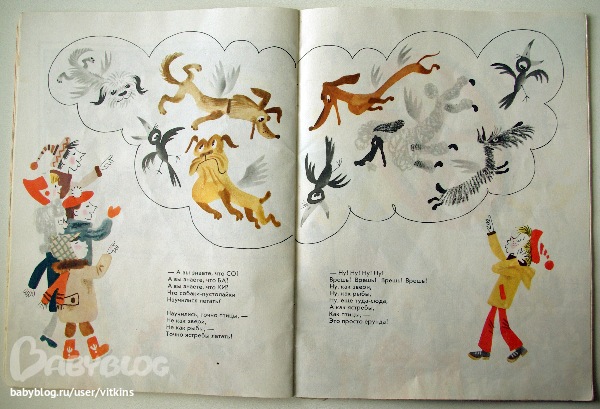 — А вы знаете, что СО!
А вы знаете, что БА!
А вы знаете, что КИ!
Что собаки-пустолайки
Научились летать!
Научились, точно птицы, —
Не как звери,
Не как рыбы, —
Точно ястребы летать!
— Ну! Ну! Ну! Ну!
Врешь! Врешь! Врешь! Врешь!
Ну, как звери,
Ну, как рыбы,
Ну, еще туда-сюда,
А как ястребы,
Как птицы, —
Это просто ерунда!
BABYBLOG
babyblog.ru/user/vitkins